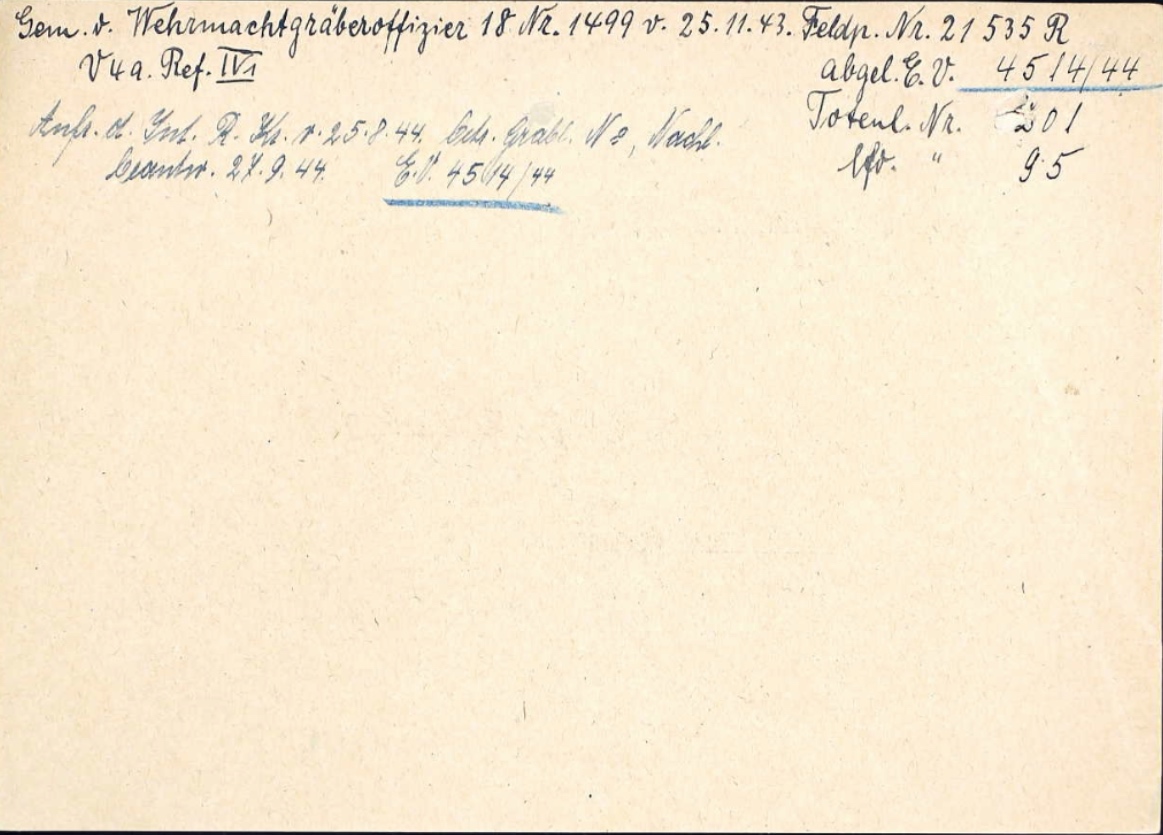 Gem. v. Wehrmachtgräberoffizier 18 Nr. 1499 v. 25.11.43. Feldp. Nr. 21 535 R
V4a. Ref. IV1
abgel. E. V. 4514/44
Totenl. Nr. 201
lfd. " 95
Anfr. d. Int. R. Kr. v. 25.8.44. betr. Grabl. Nachl.
beantw. 27.9.44. E.V. 4514/44